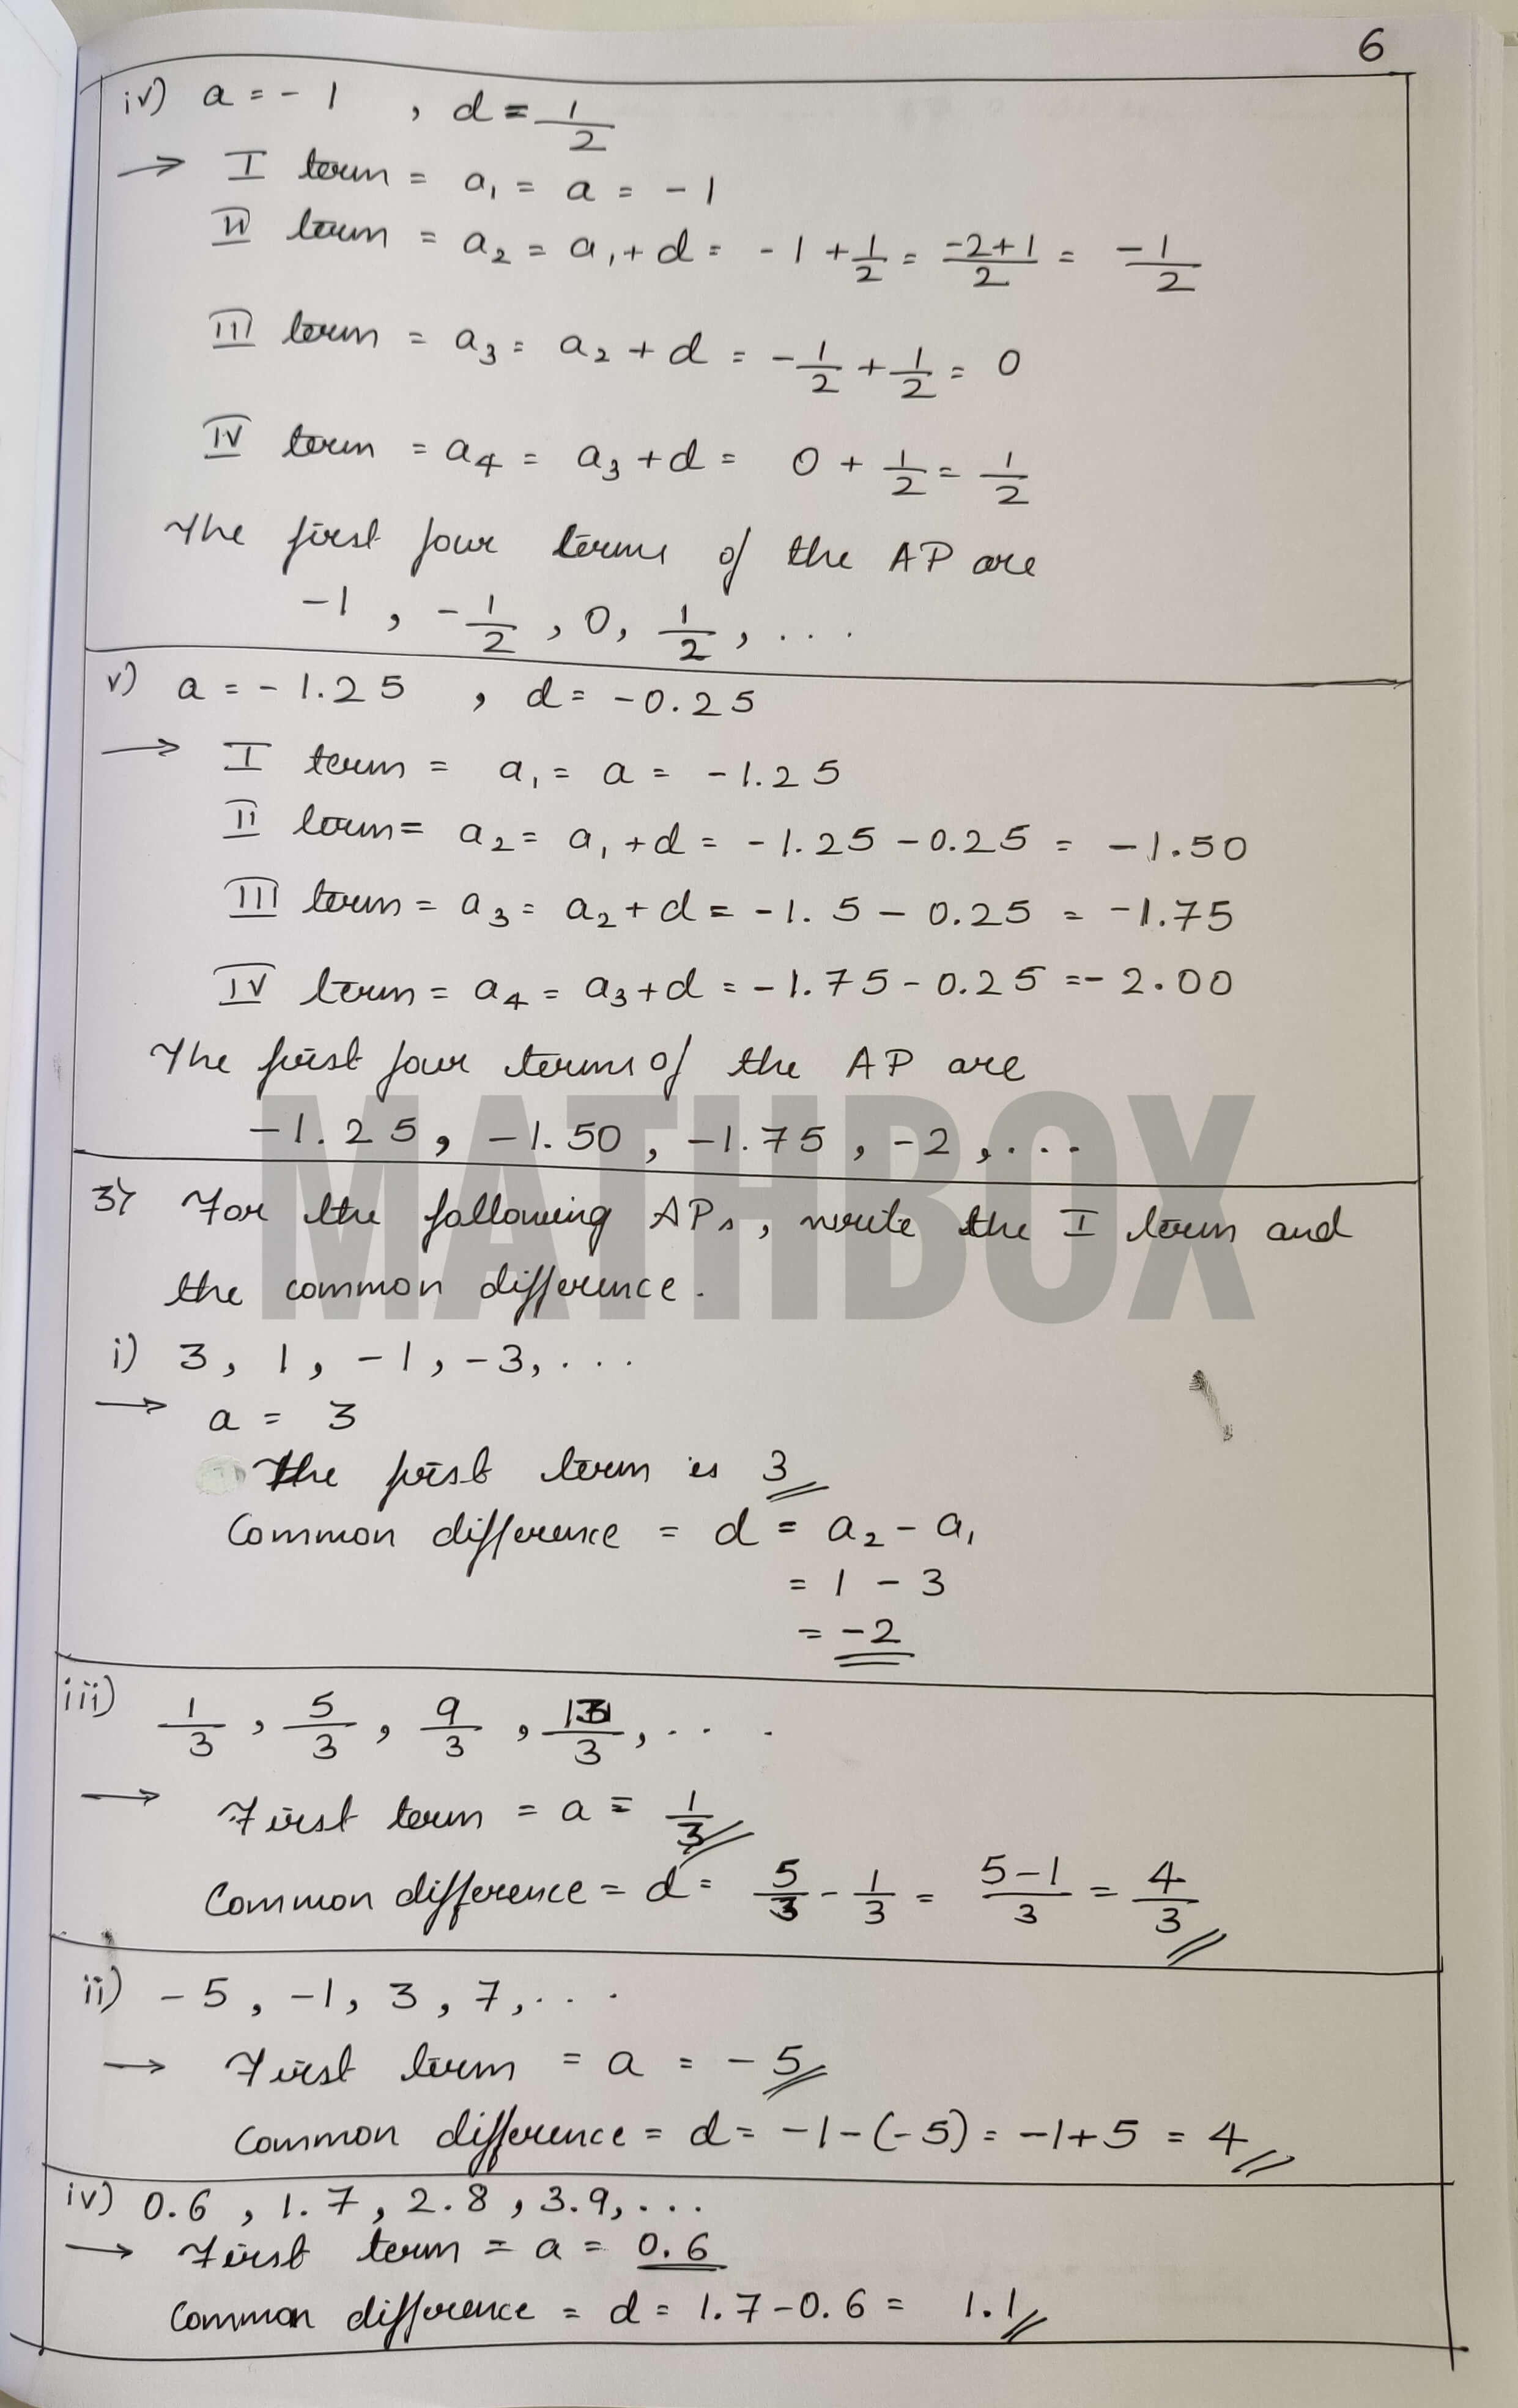 6
iv) a = - 1 , d = 1/2
→ I term = a₁ = a = - 1
II term = a₂ = a₁ + d = - 1 + 1/2 = -2+1/2 = -1/2
III term = a₃ = a₂ + d = -1/2 + 1/2 = 0
IV term = a₄ = a₃ + d = 0 + 1/2 = 1/2
The first four terms of the AP are
-1 , -1/2 , 0, 1/2 , ...
v) a = - 1.25 , d = -0.25
→ I term = a₁ = a = -1.25
II term = a₂ = a₁ + d = -1.25 - 0.25 = -1.50
III term = a₃ = a₂ + d = -1.5 - 0.25 = -1.75
IV term = a₄ = a₃ + d = -1.75 - 0.25 = -2.00
The first four terms of the AP are
-1.25, -1.50, -1.75, -2, ...
MATHBOX
3) For the following APs, write the I term and
the common difference.
i) 3, 1, -1, -3, ...
→ a = 3
The first term is 3
Common difference = d = a₂ - a₁
= 1 - 3
= -2
iii) 1/3 , 5/3 , 9/3 , 13/3 , ...
→ First term = a = 1/3
Common difference = d = 5/3 - 1/3 = 5-1/3 = 4/3
ii) -5, -1, 3, 7, ...
→ First term = a = -5
Common difference = d = -1-(-5) = -1+5 = 4
iv) 0.6, 1.7, 2.8, 3.9, ...
→ First term = a = 0.6
Common difference = d = 1.7-0.6 = 1.1